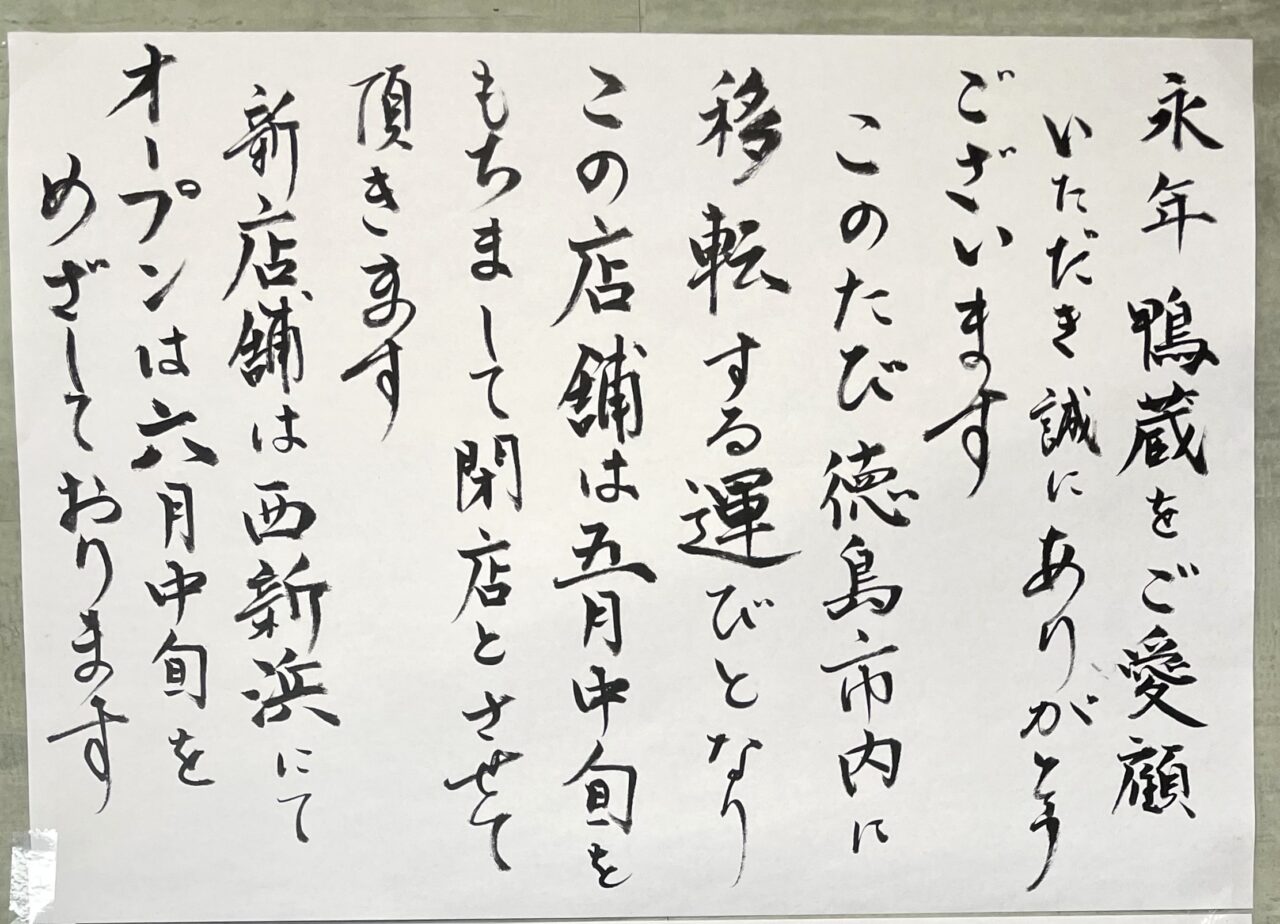 永年 鴨蔵をご愛顧
いただき誠にありがとう
ございます
このたび徳島市内に
移転する運びとなり
この店舗は五月中旬を
もちまして閉店とさせて
頂きます
新店舗は西新浜にて
オープンは六月中旬を
めざしております